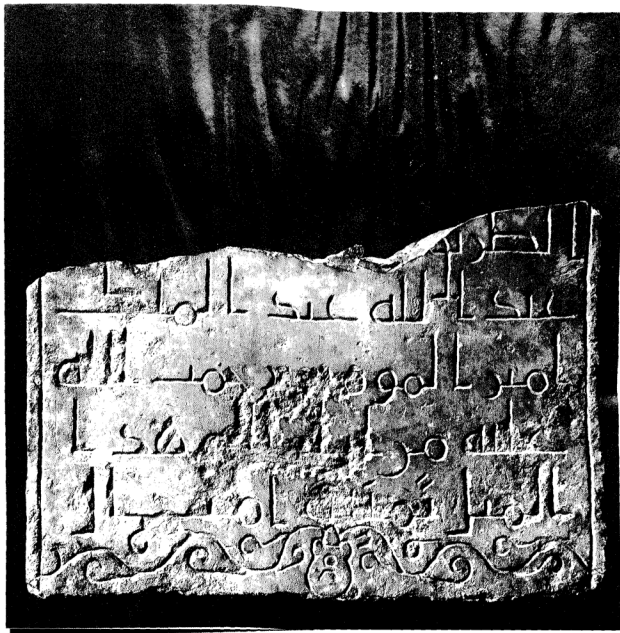 الطريق
عبد الله عبد الملك
امير المومنين رحمت الله
عليه من ايليا الى هذا
الميل ثمنيه اميال